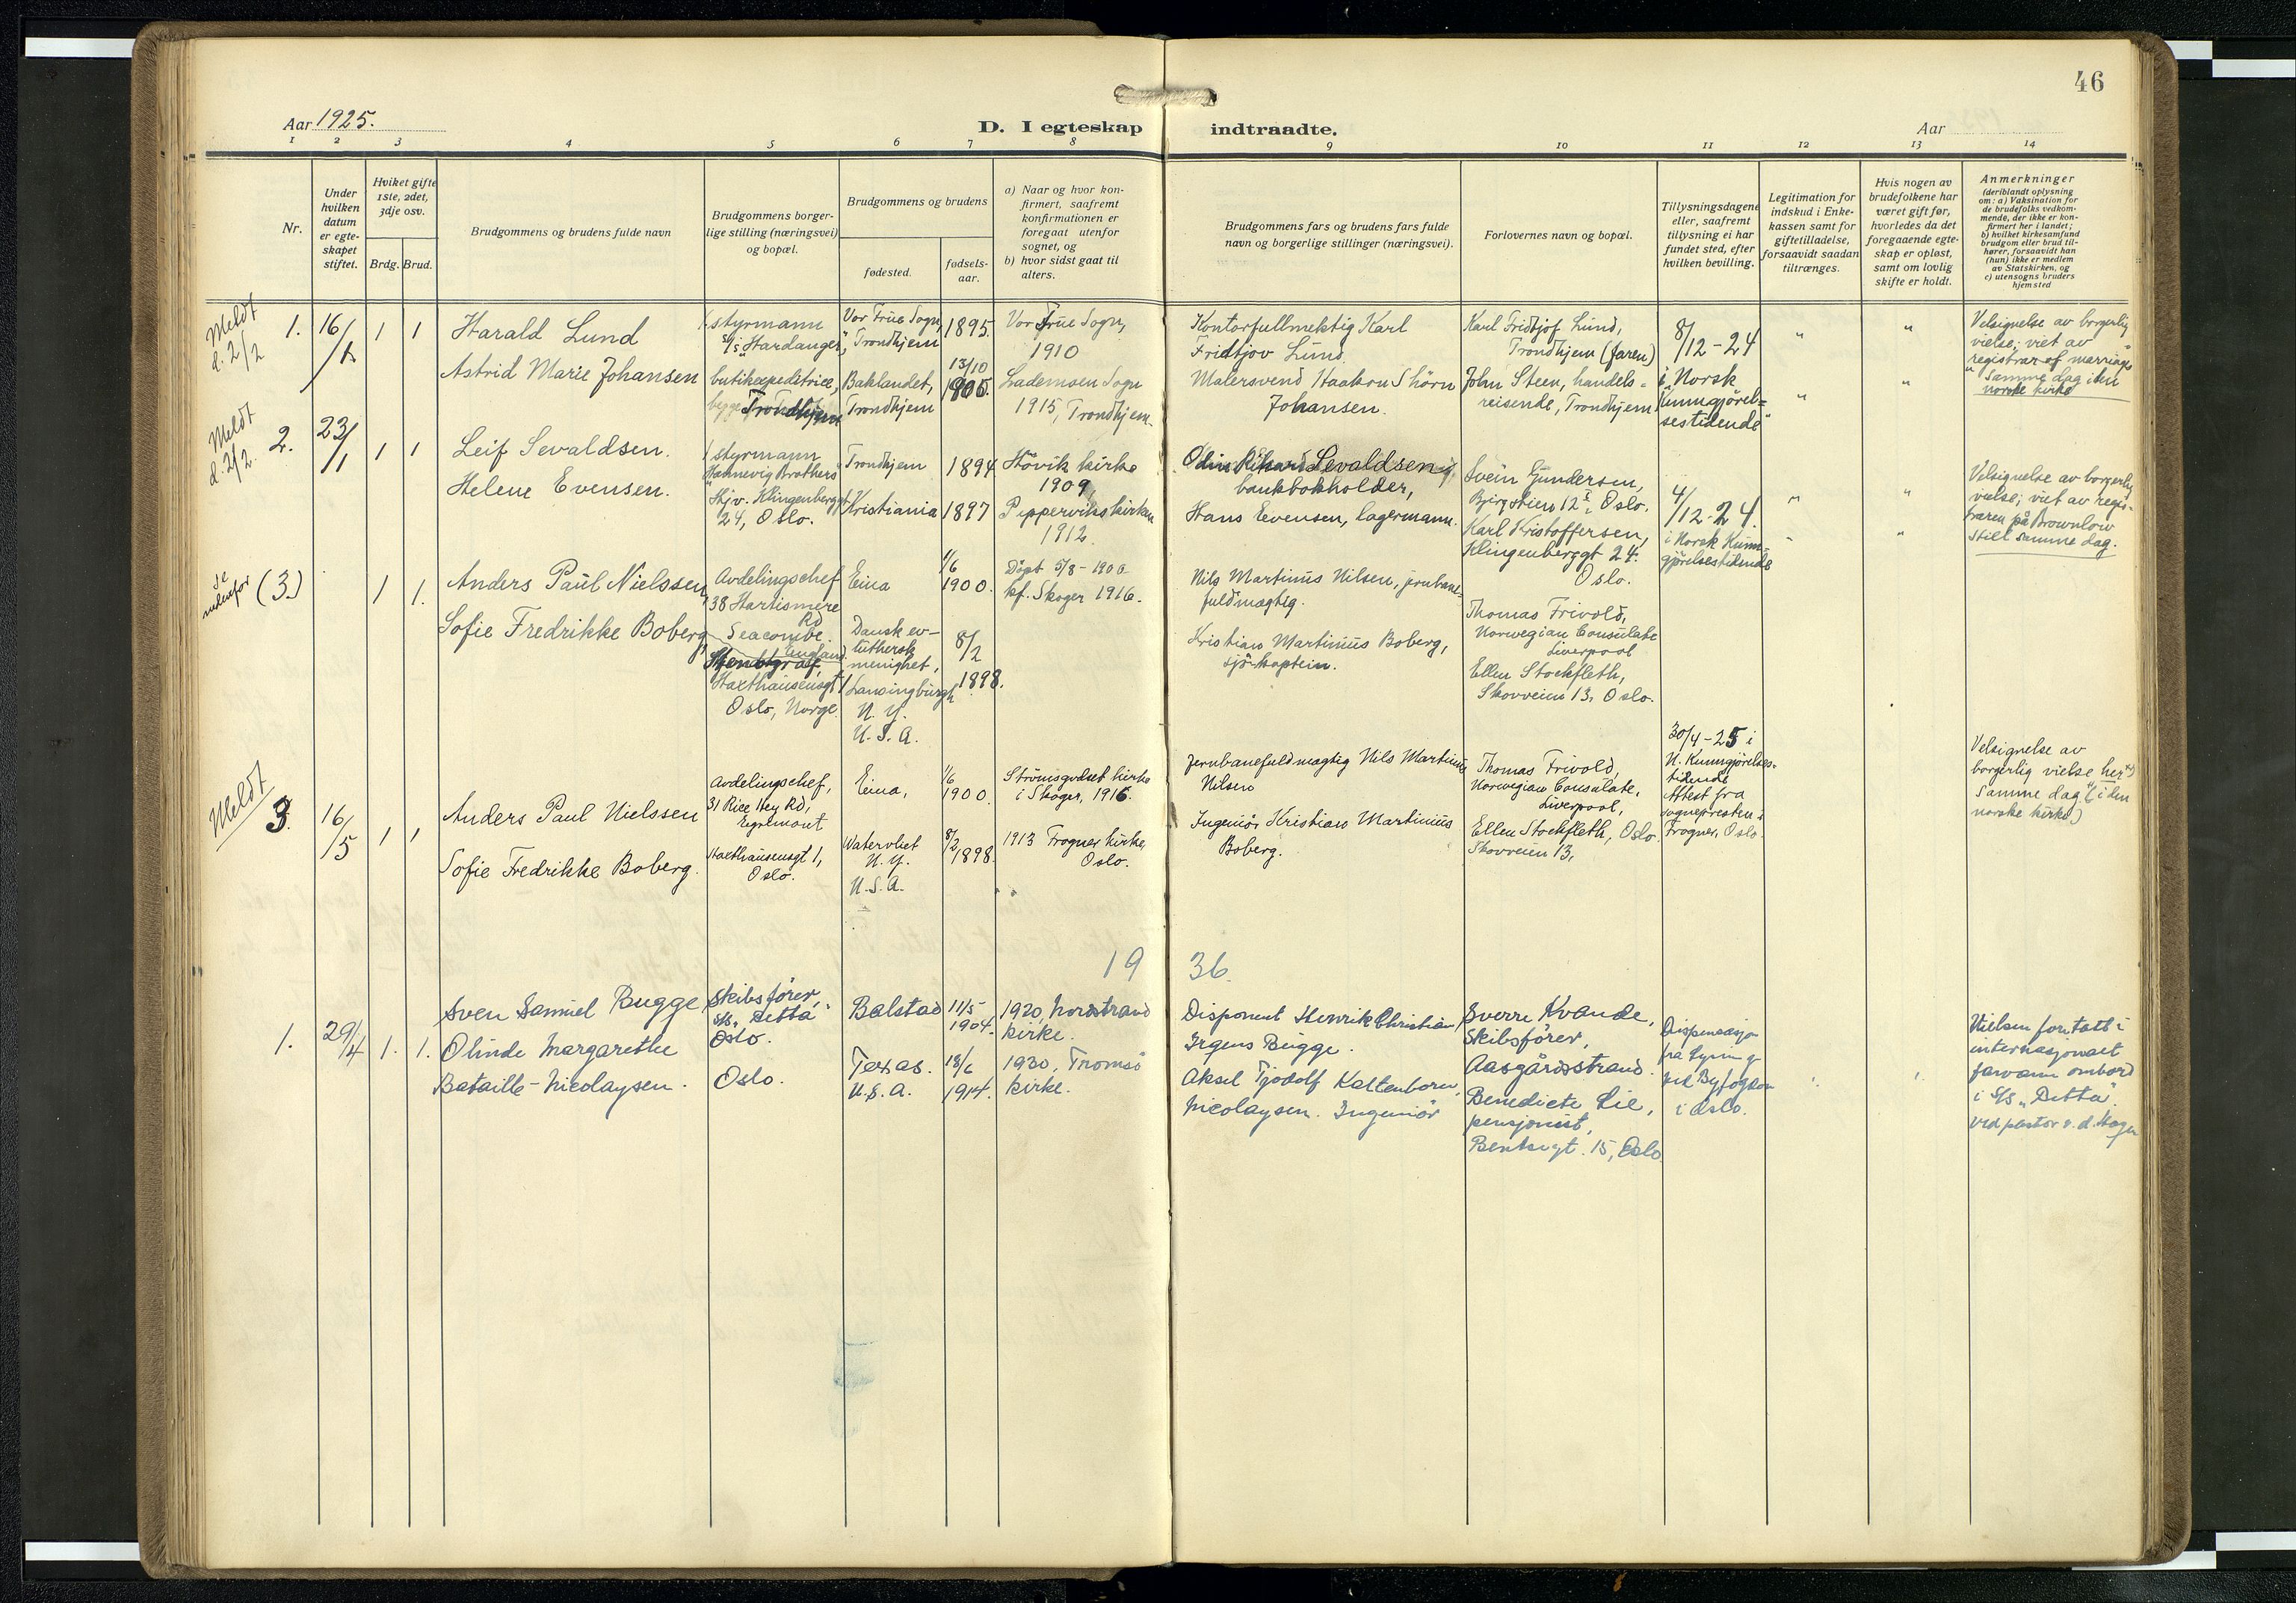 46
Aar 1925.
D. I egteskap indtraadte.
Aar
1 2 3 4 5 6 7 8 9 10 11 12 13 14
Nr.
Under hvilken datum er egteskapet stiftet.
Hviket gifte 1ste, 2det, 3dje osv.
Brdg. Brud.
Brudgommens og brudens fulde navn
Brudgommens borgerlige stilling (næringsvei) og bopæl.
Brudgommens og brudens
fødested.
fødselsaar.
a) Naar og hvor konfirmert, saafremt konfirmationen er foregaat utenfor sognet, og
b) hvor sidst gaat til alters.
Brudgommens fars og brudens fars fulde navn og borgerlige stillinger (næringsvei).
Forlovernes navn og bopæl.
Tillysningsdagene eller, saafremt tillysning ei har fundet sted, efter hvilken bevilling.
Legitimation for indskud i Enkekassen samt for giftetilladelse, forsaavidt saadan tiltrænges.
Hvis nogen av brudefolkene har været gift før, hvorledes da det foregaaende egteskap er opløst, samt om lovlig skifte er holdt.
Anmerkninger
(deriblandt oplysning om: a) Vaksination for de brudefolks vedkommende, der ikke er konfirmert her i landet;
b) hvilket kirkesamfund brudgom eller brud tilhører, forsaavidt han (hun) ikke er medlem av Statskirken, og
c) utensogns bruders hjemsted
Meldt d. 2/2
1. 16/1 1 1
Harald Lund
styrmann
s/s "Hardanger"
Vor Frue Sogn, Trondhjem
1895
Vor Frue Sogn,
1910
Kontorfullmektig Karl
Fridtjov Lund
Karl Fridtjof Lund,
Trondhjem (faren)
8/12-24
i Norsk
Kunngjørel=
sestidende"
Velsignelse av borgerlig
vielse; viet av
registrar of marriages
samme dag i den
norske kirke
Astrid Marie Johansen
butikexpeditrice,
begge Trondhjem
Baklandet,
Trondhjem
13/10
1905
Lademoen Sogn
1915, Trondhjem.
Malersvend Haakon
Johansen.
John Steen, handels=
reisende, Trondhjem
Meldt d. 2/2.
2. 23/1 1 1
Leif Sevaldsen.
styrmann
Hannevig Brothers
Trondhjem
1894
Høvik kirke
1909
Sevaldsen,
bankbokholder,
Svein Gundersen,
12 Oslo.
4/12-24.
i Norsk Kunn=
gjørelsestidende
Velsignelse av borgerlig
vielse; viet av regis-
traren på Brownlow
Hill samme dag.
Helene Evensen.
Hjv. Klingenberggt
24, Oslo.
Kristiania
1897
Pipperviks kirken
1912.
Hans Evensen, lagermann.
Karl Kristoffersen,
Klingenberggt 24.
Oslo.
se nedenfor
(3.) 1 1.
Anders Paul Nielssen,
Avdelingschef
38 Hartismere
Rd
Seacombe.
England
Eina
1/6
1900.
Døpt 5/8-1900
kf. Skoger 1916.
Nils Martinus Nilsen, jernbane-
fuldmægtig.
Thomas Frivold,
Norwegian Consulate
Liverpool
Sofie Fredrikke Boberg,
Haxthausensgt 1
Oslo, Norge.
Dansk ev-
luthersk
menighet,
Lansingburgh
N. Y.
U. S. A.
8/2
1898.
Kristian Martinius Boberg,
sjøkaptein.
Ellen Stockfleth,
Skovveien 13, Oslo.
Meldt
3. 16/5 1 1
Anders Paul Nielssen
Avdelingschef,
31 Rice Hey Rd,
Egremont
Eina,
1/6
1900.
Strømsgodset kirke
i Skoger, 1916.
Jernbanefuldmægtig Nils Martinus
Nilsen
Thomas Frivold,
Norwegian Consulate,
Liverpool,
30/4-25 i
N. Kunngjørelses-
tidende
Attest fra
sognepresten i
Frogner, Oslo.
Velsignelse av
borgerlig vielse her
samme dag (i den
norske kirke)
Sofie Fredrikke Boberg.
Haxthausensgt 1,
Oslo.
Watervliet
N. Y.
U. S. A.
8/2
1898.
1913 Frogner kirke,
Oslo.
Ingeniør Kristian Martinius
Boberg.
Ellen Stockfleth, Oslo
Skovveien 13,
19 36
1. 29/4 1. 1.
Sven Samuel Bugge,
Skibsfører,
s/s "Ditta"
Oslo.
Balstad
11/5
1904.
1920, Nordstrand
kirke.
Disponent Henrik Christian
Irgens Bugge.
Sverre Kvande,
Skibsfører,
Aasgårdsstrand.
Dispensasjon
fra lysning
ved Byfogden
i Oslo.
Vielsen foretatt i
internasjonalt
farvann ombord
i s/s "Ditta"
ved pastor v. d. Hagen
Olinde Margarethe
Bataille-Nicolaysen.
Oslo.
Texas.
U.S.A.
18/6
1914.
1930, Tromsø
kirke.
Aksel Tjodolf Kaltenborn
Nicolaysen. Ingeniør
Benedicte Lie,
pensjonist,
Bentsegt. 15, Oslo